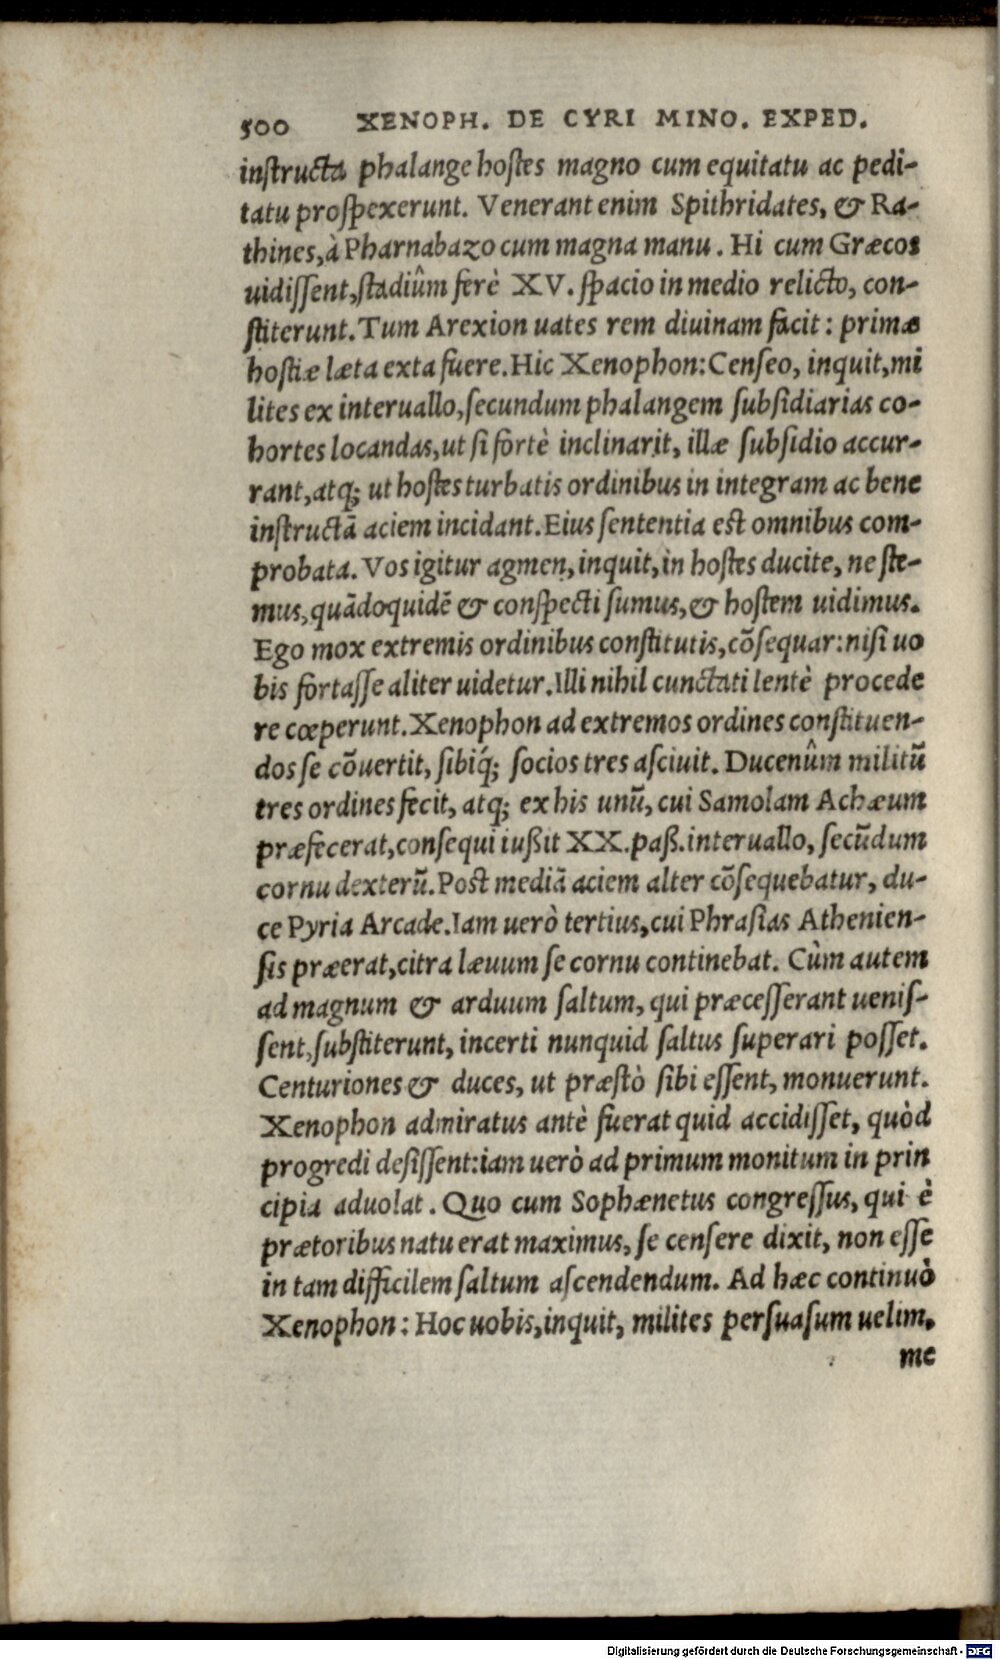 500 XENOPH. DE CYRI MINO. EXPED.
instructa phalange hostes magno cum equitatu ac pedi-
tatu prospexerunt. Venerant enim Spithridates, & Ra-
thines, à Pharnabazo cum magna manu. Hi cum Græcos
uidissent, stadiûm ferè XV. spacio in medio relicto, con-
stiterunt. Tum Arexion uates rem diuinam facit: primæ
hostiæ læta exta fuere. Hic Xenophon: Censeo, inquit, mi
lites ex interuallo, secundum phalangem subsidiarias co-
hortes locandas, ut si fortè inclinarit, illæ subsidio accur-
rant, atq; ut hostes turbatis ordinibus in integram ac bene
instructā aciem incidant. Eius sententia est omnibus com-
probata. Vos igitur agmen, inquit, in hostes ducite, ne ste-
mus, quādoquidē & conspecti sumus, & hostem uidimus.
Ego mox extremis ordinibus constitutis, cōsequar: nisi uo
bis fortasse aliter uidetur. Illi nihil cunctati lentè procede
re cœperunt. Xenophon ad extremos ordines constituen-
dos se cōuertit, sibiq́; socios tres asciuit. Ducenûm militū
tres ordines fecit, atq; ex his unū, cui Samolam Achæum
præfecerat, consequi iußit XX. paß. interuallo, secūdum
cornu dexterū. Post mediā aciem alter cōsequebatur, du-
ce Pyria Arcade. Iam uerò tertius, cui Phrasias Athenien-
sis præerat, citra læuum se cornu continebat. Cùm autem
ad magnum & arduum saltum, qui præcesserant uenis-
sent, substiterunt, incerti nunquid saltus superari posset.
Centuriones & duces, ut præstò sibi essent, monuerunt.
Xenophon admiratus antè fuerat quid accidisset, quòd
progredi desissent: iam uerò ad primum monitum in prin
cipia aduolat. Quo cum Sophænetus congressus, qui è
prætoribus natu erat maximus, se censere dixit, non esse
in tam difficilem saltum ascendendum. Ad hæc continuò
Xenophon: Hoc uobis, inquit, milites persuasum uelim,
me
Digitalisierung gefördert durch die Deutsche Forschungsgemeinschaft - DFG